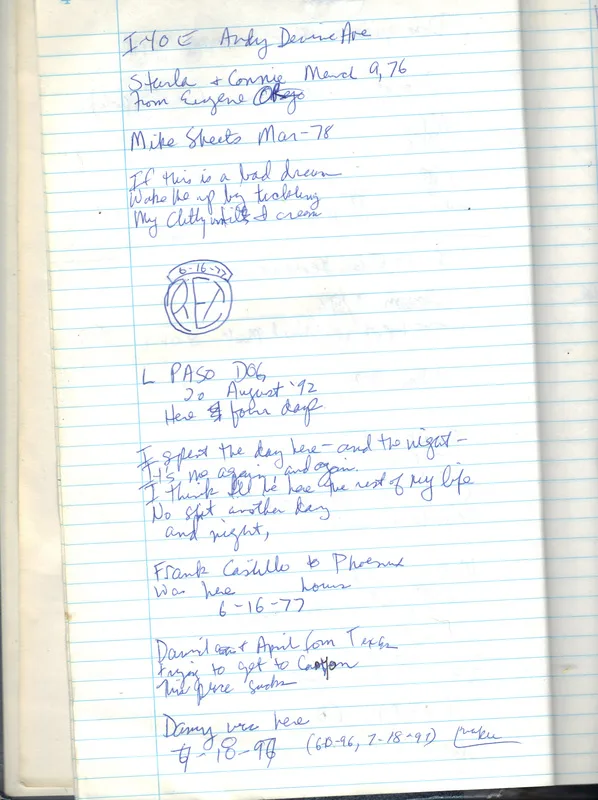 I-40 E Andy Devine Ave
Starla + Connie March 9, 76
from Eugene Oreg
Mike Sheets Mar-78
If this is a bad dream
Wake me up by tickling
My Clitty while I cream
6-16-77
REZ
L PASO DOG
20 August '92
Here 4 four days
I spent the day here - and the night -
It's me again, and again.
I think I'll be here the rest of my life
No shit another day
and night,
Frank Castillo to Phoenix
was here hours
6-16-77
David + April from Texas
trying to get to Canyon
this place sucks
Danny was here
-18-97 (6-18-96, 7-18-97)